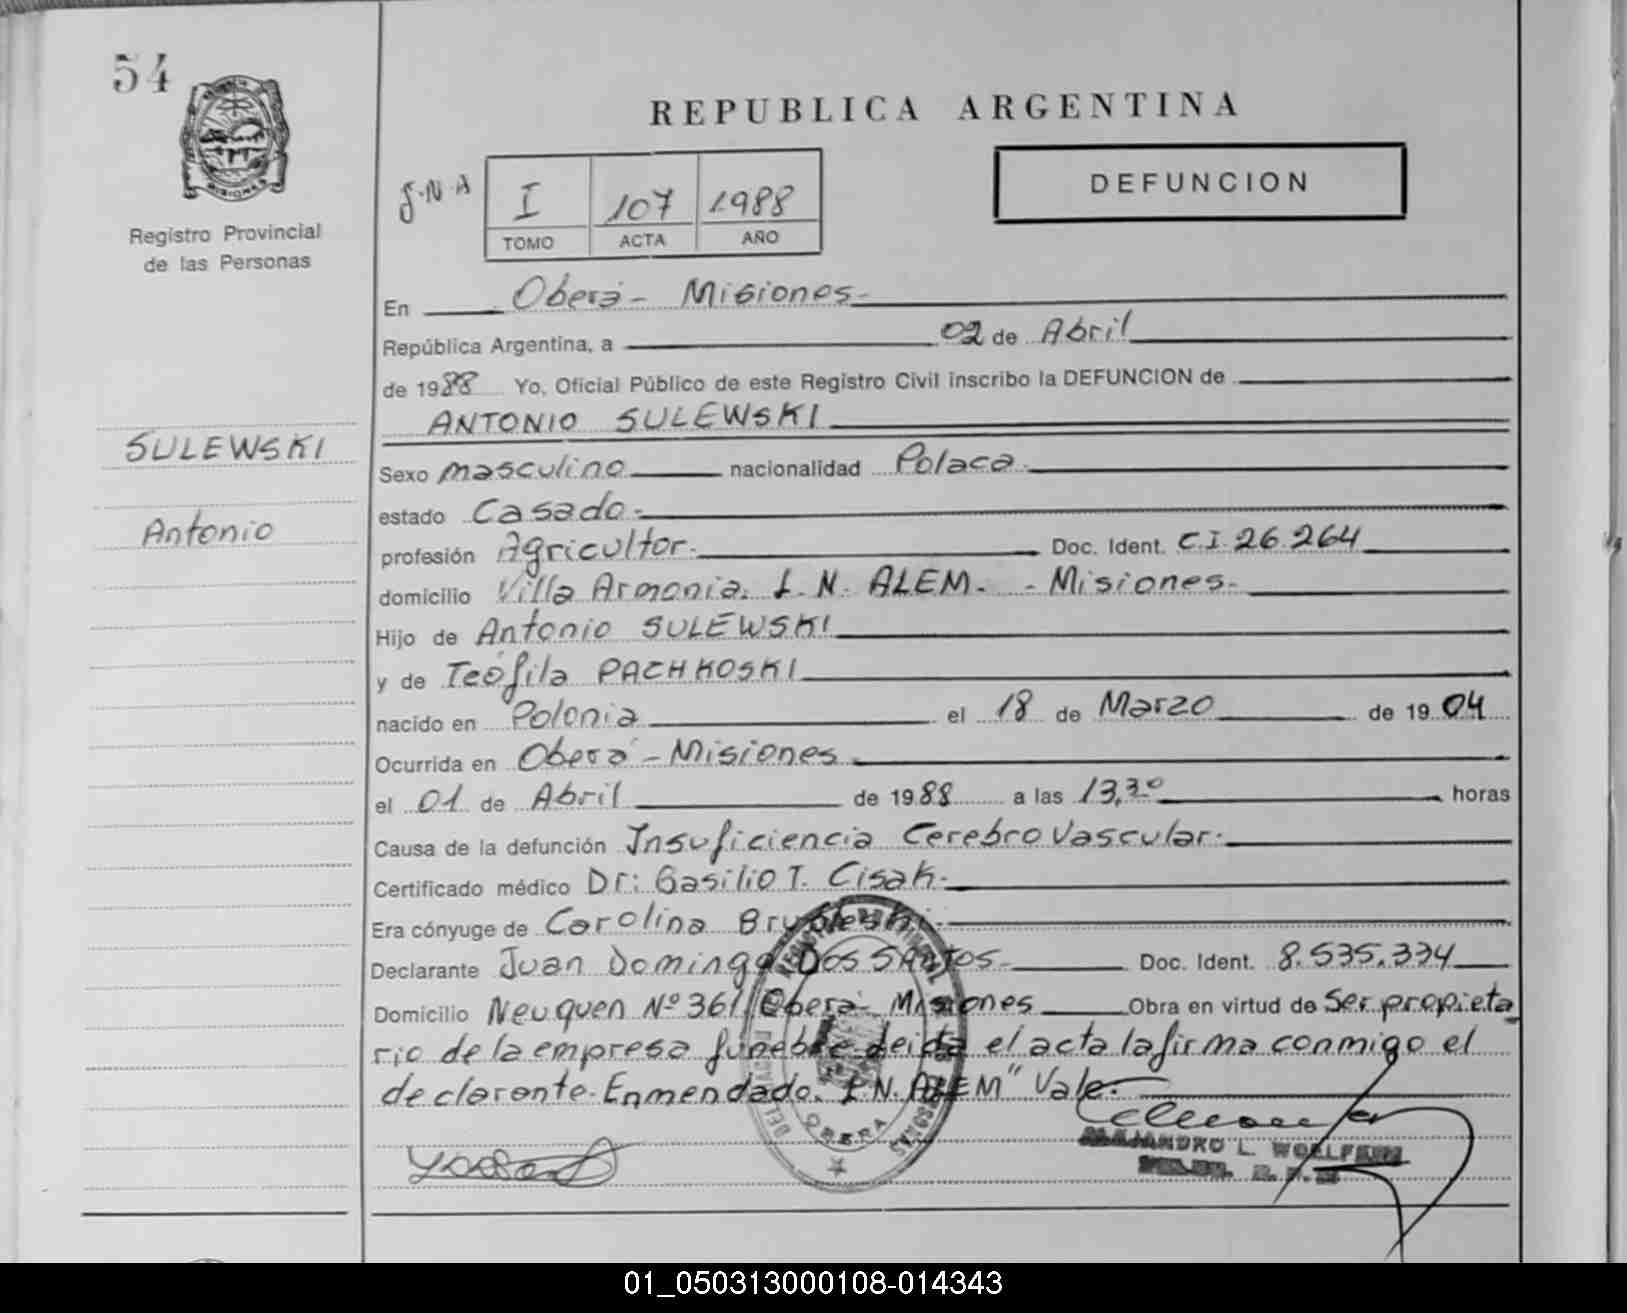 54
MISIONES
Registro Provincial
de las Personas
REPUBLICA ARGENTINA
I 107 1988
TOMO ACTA AÑO
DEFUNCION
En Oberá - Misiones -
República Argentina, a 02 de Abril
de 1988 Yo, Oficial Público de este Registro Civil inscribo la DEFUNCION de
ANTONIO SULEWSKI
SULEWSKI
Antonio
Sexo masculino nacionalidad Polaca.
estado Casado.
profesión Agricultor. Doc. Ident. C.I. 26.264
domicilio Villa Armonia. L.N. ALEM. - Misiones.
Hijo de Antonio SULEWSKI
y de Teófila PACHKOSKI
nacido en Polonia el 18 de Marzo de 1904
Ocurrida en Oberá - Misiones
el 01 de Abril de 1988 a las 13,30 horas
Causa de la defunción Insuficiencia Cerebro Vascular.
Certificado médico Dr: Basilio T. Cisak.
Era cónyuge de Carolina
Declarante Juan Domingo DOS SANTOS Doc. Ident. 8.535.334
Domicilio Neuquen Nº 361 Oberá Misiones Obra en virtud de Ser propieta
rio de la empresa funebre. leida el acta la firma conmigo el
declarante. Enmendado. L.N. ALEM" Vale.
OBERA
ALEJANDRO L.
01_050313000108-014343